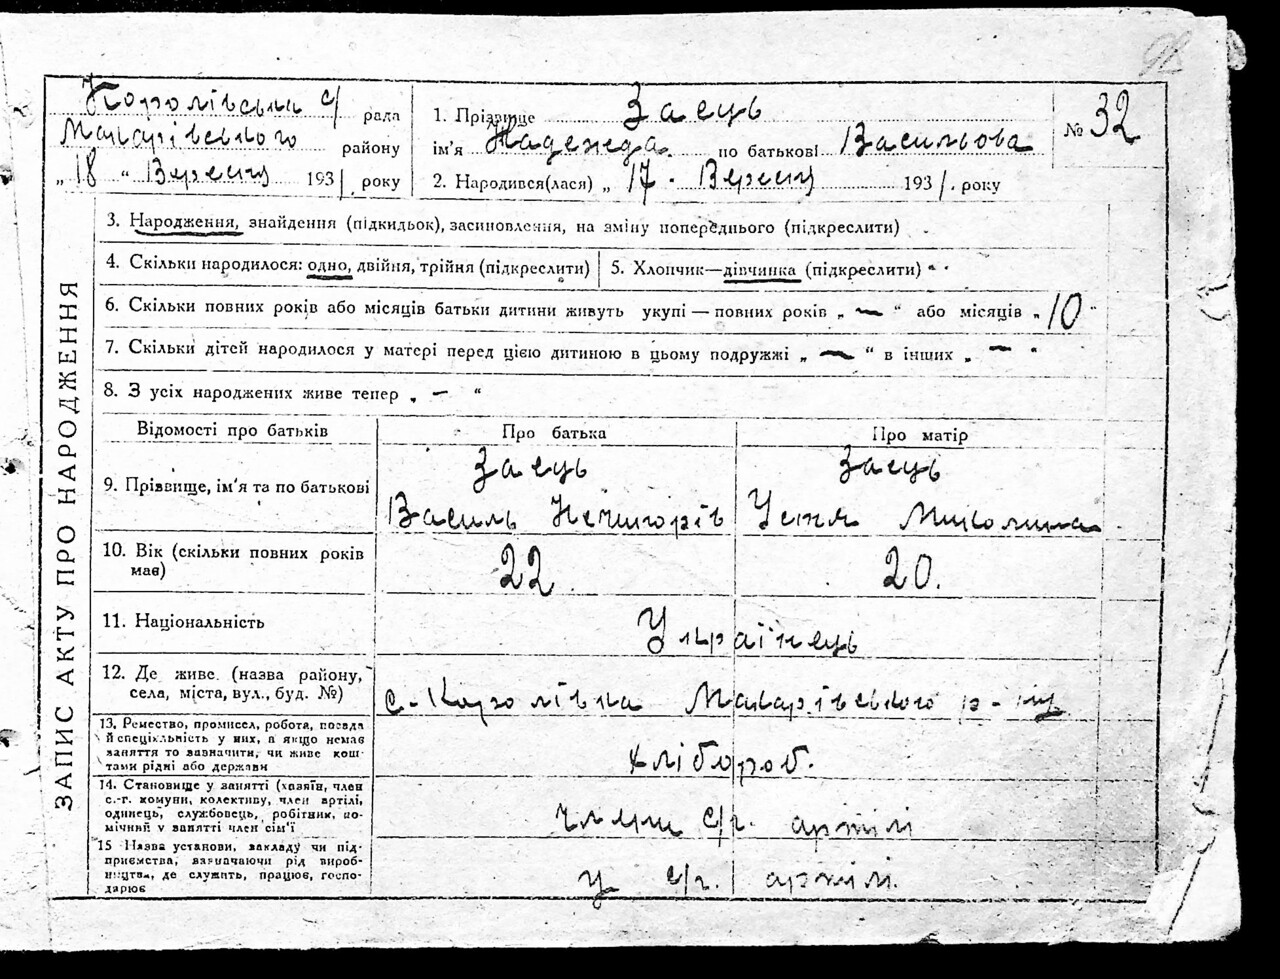 92
Королівська с/ рада
Макарівського району
„ 18 “ Вересня 1931 року
1. Прізвище Заєць
ім'я Надежда по батькові Васильова
№ 32
2. Народився(лася) „ 17 Вересня 1931. року
ЗАПИС АКТУ ПРО НАРОДЖЕННЯ
3. Народження, знайдення (підкидьок), засиновлення, на зміну попереднього (підкреслити)
4. Скільки народилося: одно, двійня, трійня (підкреслити)
5. Хлопчик—дівчинка (підкреслити)
6. Скільки повних років або місяців батьки дитини живуть укупі — повних років „ — “ або місяців „ 10 “
7. Скільки дітей народилося у матері перед цією дитиною в цьому подружжі „ — “ в інших „ — “
8. З усіх народжених живе тепер „ — “
Відомості про батьків Про батька Про матір
9. Прізвище, ім'я та по батькові
Заєць Заєць
Василь Нечипорів Устя Миколина
10. Вік (скільки повних років має)
22. 20.
11. Національність
Українець
12. Де живе. (назва району,
села, міста, вул., буд. №)
с. Королівка Макарівського р-ну
13. Ремество, промисел, робота, посада
й спеціяльність у них, а якщо немає
заняття то зазначити, чи живе кош-
тами рідні або держави
хлібороб.
14. Становище у занятті (хазяїн, член
с.-г. комуни, колективу, член артілі,
одинець, службовець, робітник, по-
мічний у занятті член сім'ї
члени с/г. артілі
15 Назва установи, закладу чи під-
приємства, зазначаючи рід вироб-
ництва, де служить, працює, госпо-
дарює
у с/г. артілі.